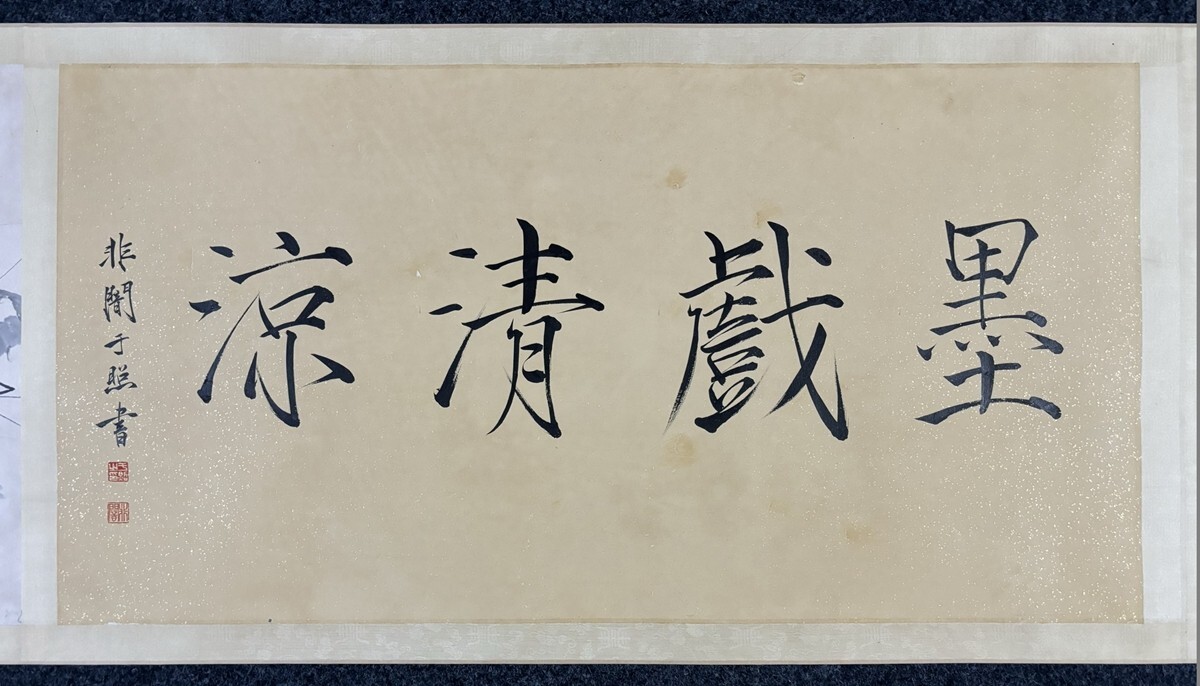 墨戲清涼
非闇于照書